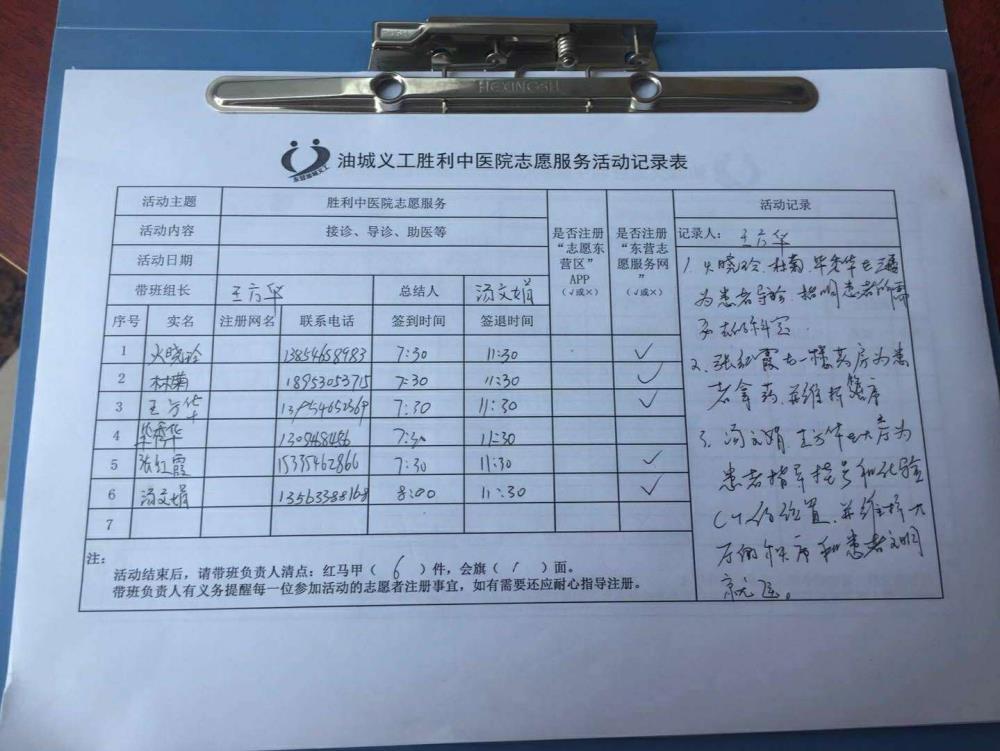 HEXINGSH
油城义工胜利中医院志愿服务活动记录表
东营油城义工
活动主题 胜利中医院志愿服务 是否注册“志愿东营区”APP（√或×） 是否注册“东营志愿服务网”（√或×） 活动记录
活动内容 接诊、导诊、助医等 记录人：王方华
活动日期
带班组长 王方华 总结人 汤文娟
序号 实名 注册网名 联系电话 签到时间 签退时间
1 火晓玲 13854658983 7:30 11:30 √
2 林菊 18953053715 7:30 11:30 √
3 王方华 7:30 11:30 √
4 7:30 11:30
5 张红霞 15335462866 7:30 11:30 √
6 汤文娟 13563388168 8:00 11:30 √
7
注：
活动结束后，请带班负责人清点：红马甲（6）件，会旗（1）面。
带班负责人有义务提醒每一位参加活动的志愿者注册事宜，如有需要还应耐心指导注册。
1、火晓玲、杜菊、
为患者导诊、指明患者所需
要去的科室
2、张红霞在一楼药房为患
者拿药、并维持秩序
3、汤文娟、王方华在大厅为
患者指导挂号和化验
CT的位置、并维持大
厅的秩序和患者文明
就医。